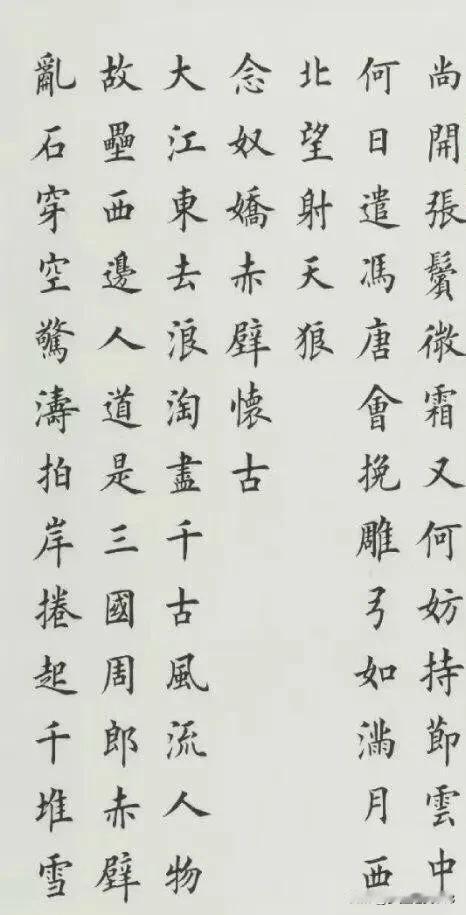 尚開張鬢微霜又何妨持節雲中
何日遣馮唐會挽雕弓如滿月西
北望射天狼
念奴嬌赤壁懷古
大江東去浪淘盡千古風流人物
故壘西邊人道是三國周郎赤壁
亂石穿空驚濤拍岸捲起千堆雪